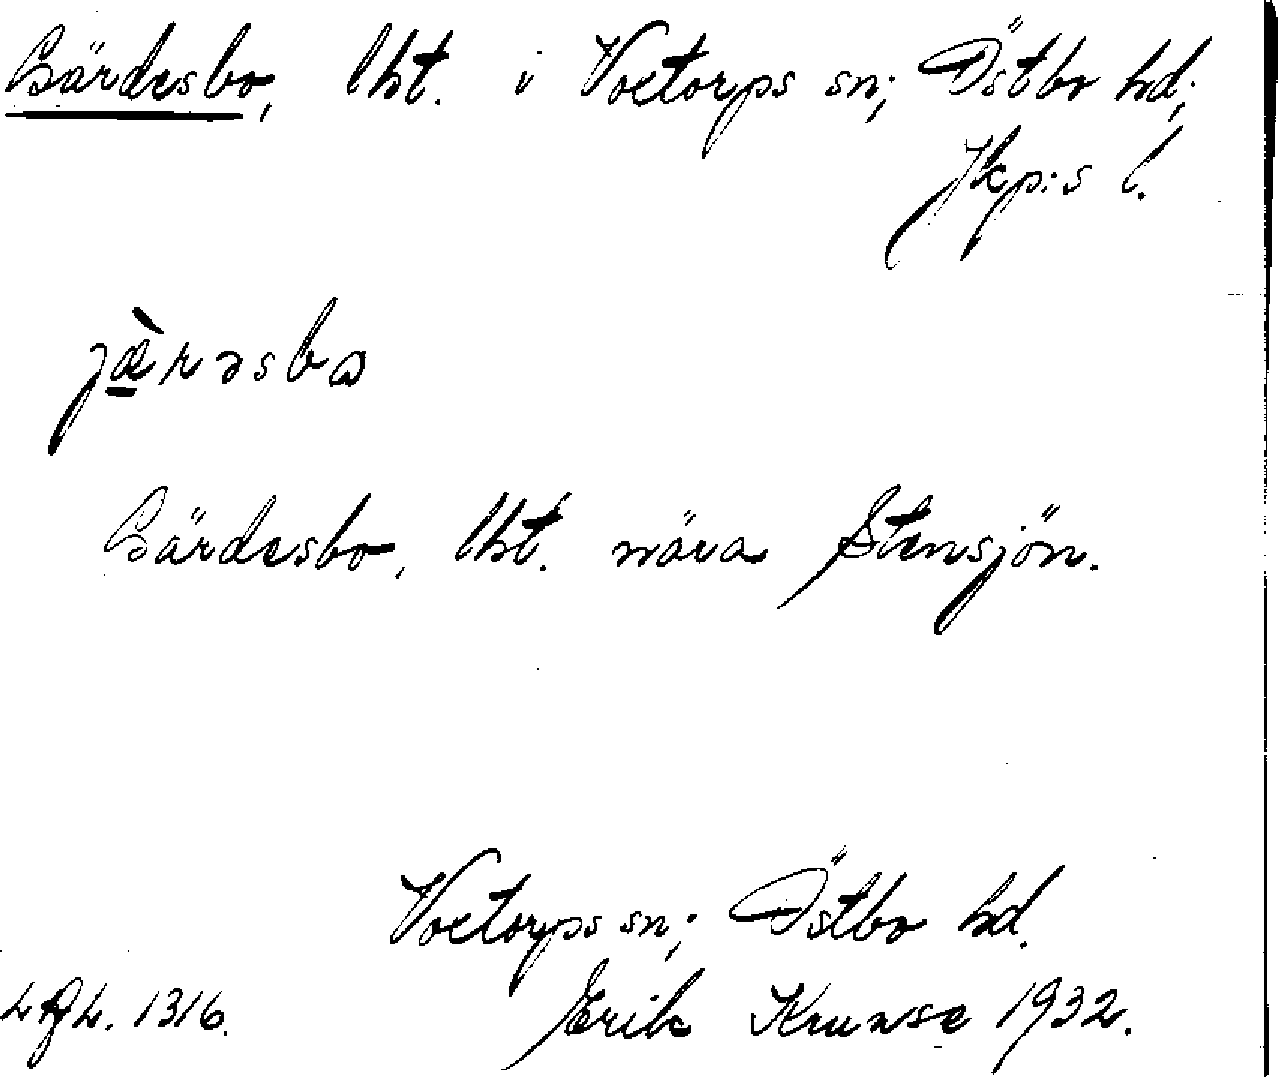 Gärdesbo, lht. i Voxtorps sn; Östbo hd;
Jkp:s l.
jæ̀rəsbo
Gärdesbo, lht. nära Stensjön.
Voxtorps sn; Östbo hd.
Erik Krunse 1932.
1316.